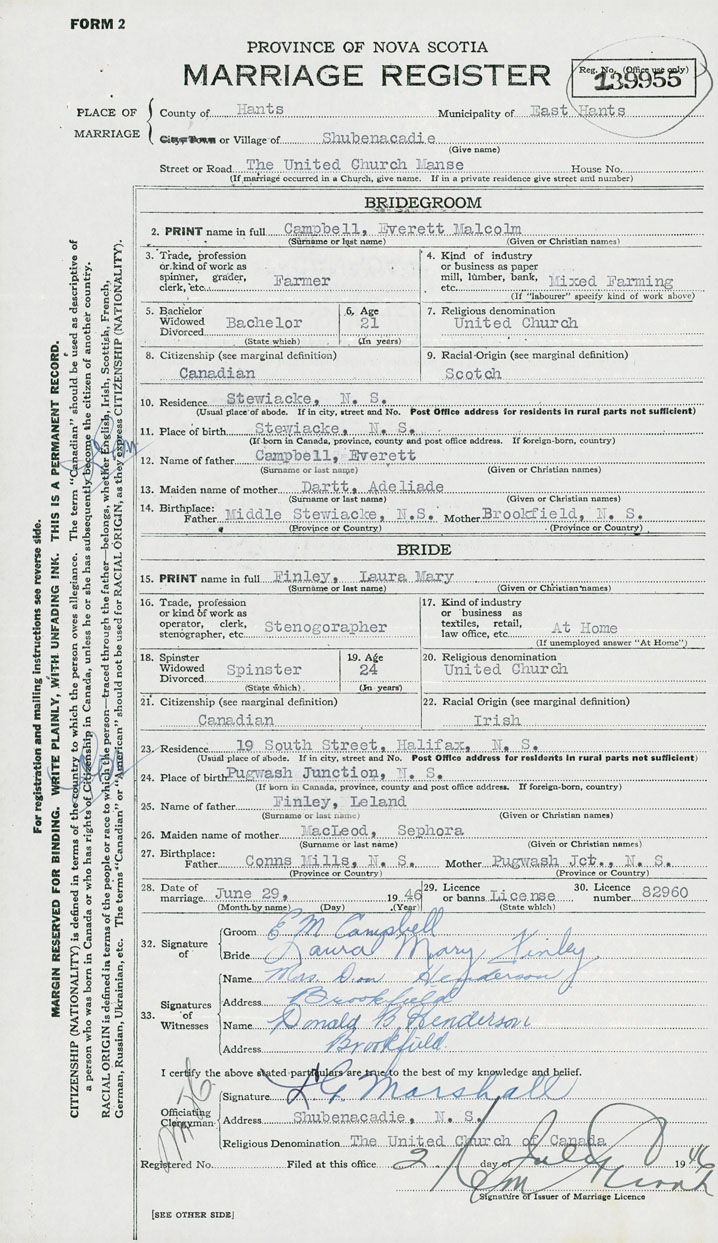 FORM 2
PROVINCE OF NOVA SCOTIA
MARRIAGE REGISTER
Reg. No. (Office use only)
139955
PLACE OF MARRIAGE
County of Hants Municipality of East Hants
City Town or Village of Shubenacadie
(Give name)
Street or Road The United Church Manse House No.
(If marriage occurred in a Church, give name. If in a private residence give street and number)
BRIDEGROOM
2. PRINT name in full Campbell, Everett Malcolm
(Surname or last name) (Given or Christian names)
3. Trade, profession or kind of work as spinner, grader, clerk, etc. Farmer
4. Kind of industry or business as paper mill, lumber, bank, etc. Mixed Farming
(If "labourer" specify kind of work above)
5. Bachelor Widowed Divorced Bachelor
(State which)
6. Age 21
(In years)
7. Religious denomination
United Church
8. Citizenship (see marginal definition)
Canadian
9. Racial-Origin (see marginal definition)
Scotch
10. Residence Stewiacke, N. S.
(Usual place of abode. If in city, street and No. Post Office address for residents in rural parts not sufficient)
11. Place of birth Stewiacke, N. S.
(If born in Canada, province, county and post office address. If foreign-born, country)
12. Name of father Campbell, Everett
(Surname or last name) (Given or Christian names)
13. Maiden name of mother Dartt, Adeliade
(Surname or last name) (Given or Christian names)
14. Birthplace: Father Middle Stewiacke, N.S. Mother Brookfield, N. S.
(Province or Country) (Province or Country)
BRIDE
15. PRINT name in full Finley, Laura Mary
(Surname or last name) (Given or Christian names)
16. Trade, profession or kind of work as operator, clerk, stenographer, etc. Stenographer
17. Kind of industry or business as textiles, retail, law office, etc. At Home
(If unemployed answer "At Home")
18. Spinster Widowed Divorced Spinster
(State which)
19. Age 24
(In years)
20. Religious denomination
United Church
21. Citizenship (see marginal definition)
Canadian
22. Racial Origin (see marginal definition)
Irish
23. Residence 19 South Street, Halifax, N. S.
(Usual place of abode. If in city, street and No. Post Office address for residents in rural parts not sufficient)
24. Place of birth Pugwash Junction, N. S.
(If born in Canada, province, county and post office address. If foreign-born, country)
25. Name of father Finley, Leland
(Surname or last name) (Given or Christian names)
26. Maiden name of mother MacLeod, Sephora
(Surname or last name) (Given or Christian names)
27. Birthplace: Father Conns Mills, N. S. Mother Pugwash Jct., N. S.
(Province or Country) (Province or Country)
28. Date of marriage June 29, 1946
(Month by name) (Day) (Year)
29. Licence or banns License
(State which)
30. Licence number 82960
32. Signature of
Groom E M Campbell
Bride Laura Mary Finley
33. Signatures of Witnesses
Name Mrs. Don Henderson
Address Brookfield
Name Donald B Henderson
Address Brookfield.
I certify the above stated particulars are true to the best of my knowledge and belief.
Officiating Clergyman
Signature L G Marshall
Address Shubenacadie, N. S.
Religious Denomination The United Church of Canada
Registered No. Filed at this office 2 day of July 1946
Signature of Issuer of Marriage Licence
[SEE OTHER SIDE]
For registration and mailing instructions see reverse side.
MARGIN RESERVED FOR BINDING. WRITE PLAINLY, WITH UNFADING INK. THIS IS A PERMANENT RECORD.
CITIZENSHIP (NATIONALITY) is defined in terms of the country to which the person owes allegiance. The term "Canadian" should be used as descriptive of
a person who was born in Canada or who has rights of Citizenship in Canada, unless he or she has subsequently become the citizen of another country.
RACIAL ORIGIN is defined in terms of the people or race to which the person—traced through the father—belongs, whether English, Irish, Scottish, French,
German, Russian, Ukrainian, etc. The terms "Canadian" or "American" should not be used for RACIAL ORIGIN, as they express CITIZENSHIP (NATIONALITY).